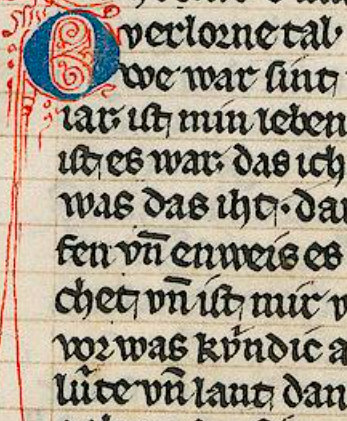 O verlorne tal
we war sint
iar· ist min leben
ist es war· das ich
was das iht·
fen vn̄ enweis es
chet vn̄ ist mir
vor was kv́ndic
lúte vn̄ lant dan